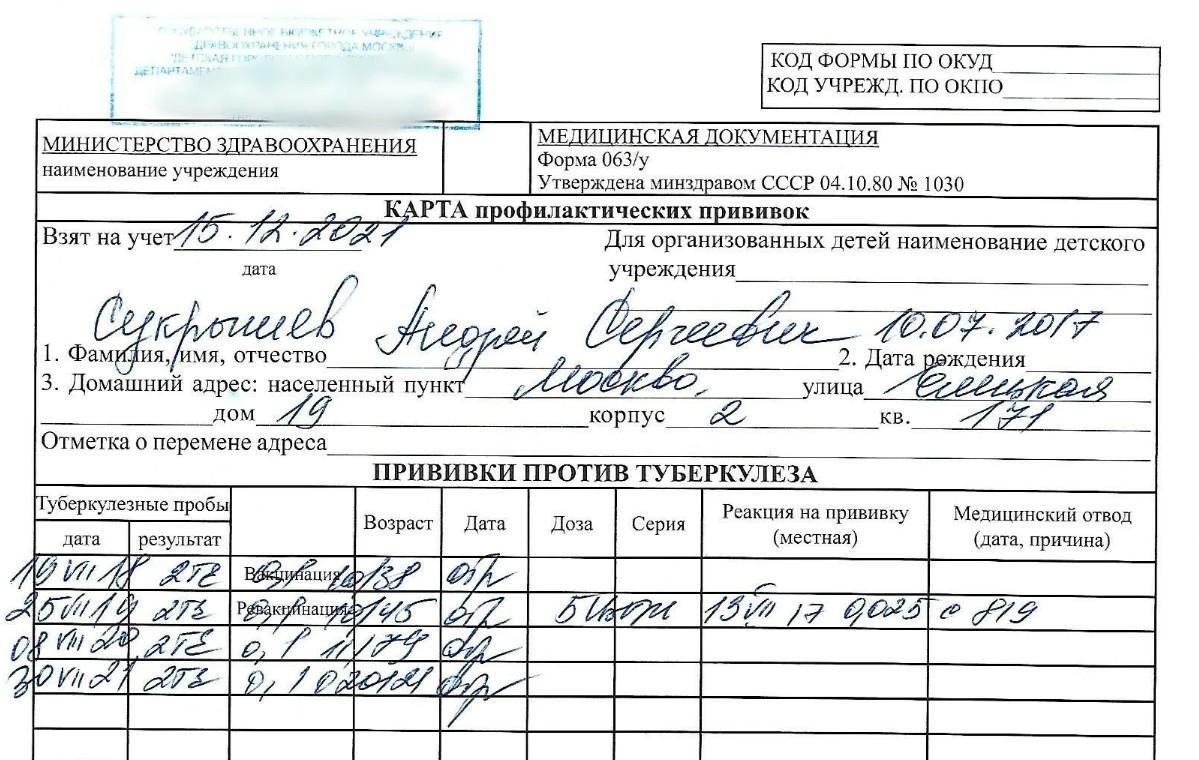 ГОСУДАРСТВЕННОЕ БЮДЖЕТНОЕ УЧРЕЖДЕНИЕ
ЗДРАВООХРАНЕНИЯ ГОРОДА МОСКВЫ
КОД ФОРМЫ ПО ОКУД
КОД УЧРЕЖД. ПО ОКПО
МИНИСТЕРСТВО ЗДРАВООХРАНЕНИЯ
наименование учреждения
МЕДИЦИНСКАЯ ДОКУМЕНТАЦИЯ
Форма 063/у
Утверждена минздравом СССР 04.10.80 № 1030
КАРТА профилактических прививок
Взят на учет 15.12.2021
дата
Для организованных детей наименование детского
учреждения
1. Фамилия, имя, отчество Сукрышев Андрей Сергеевич 2. Дата рождения 10.07.2017
3. Домашний адрес: населенный пункт Москва, улица
дом 19 корпус 2 кв. 171
Отметка о перемене адреса
ПРИВИВКИ ПРОТИВ ТУБЕРКУЛЕЗА
Туберкулезные пробы Возраст Дата Доза Серия Реакция на прививку (местная) Медицинский отвод (дата, причина)
дата результат
19 VII 18 2ТЕ Вакцинация отр
25 VII 19 2ТЕ Ревакцинация отр 13 VII 17 0,025 с 819
08 VII 20 2ТЕ 0,1 отр
30 VII 21 2ТЕ 0,1 отр